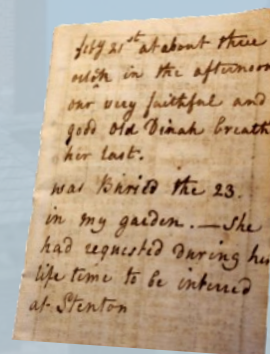 feby 21st at about three
oclok in the afternoon
our very faithful and
good old Dinah breath
her last.
was Buried the 23.
in my garden. — She
had requested during her
life time to be interred
at Stenton